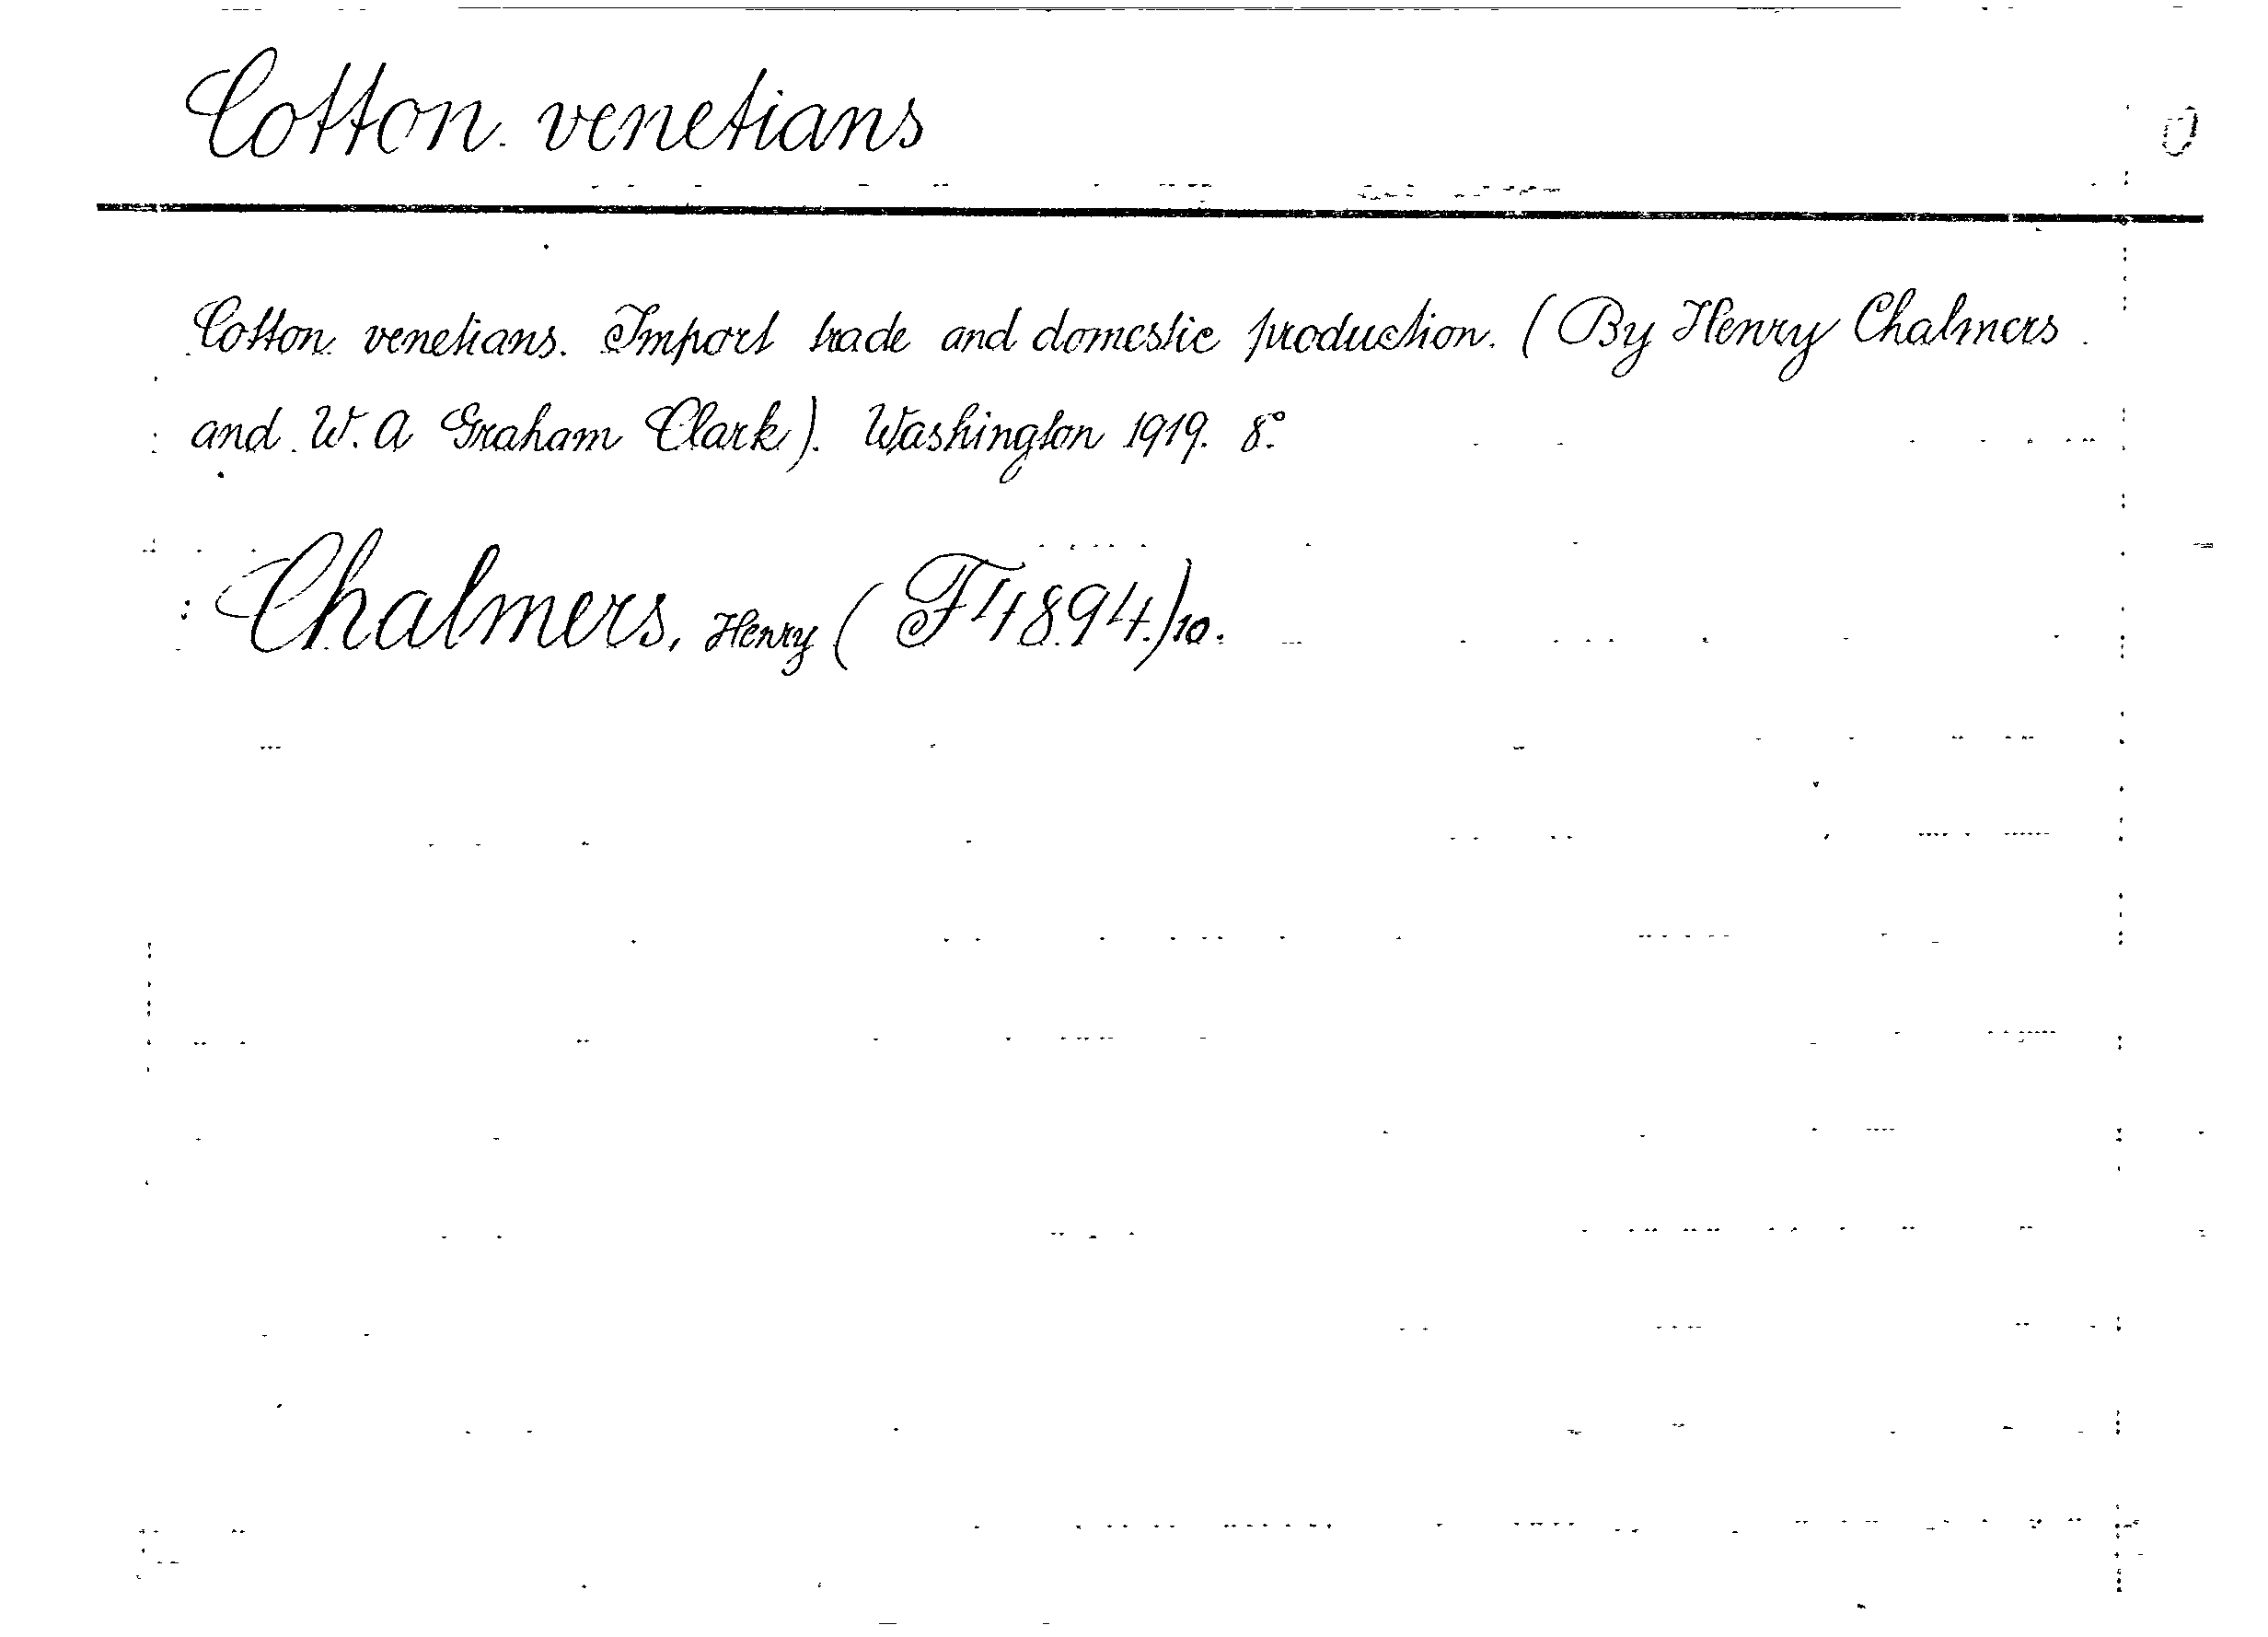 Cotton venetians
Cotton venetians. Import trade and domestic production. (By Henry Chalmers
and W. A Graham Clark). Washington 1919. 8°
Chalmers, Henry (F4894.)10.